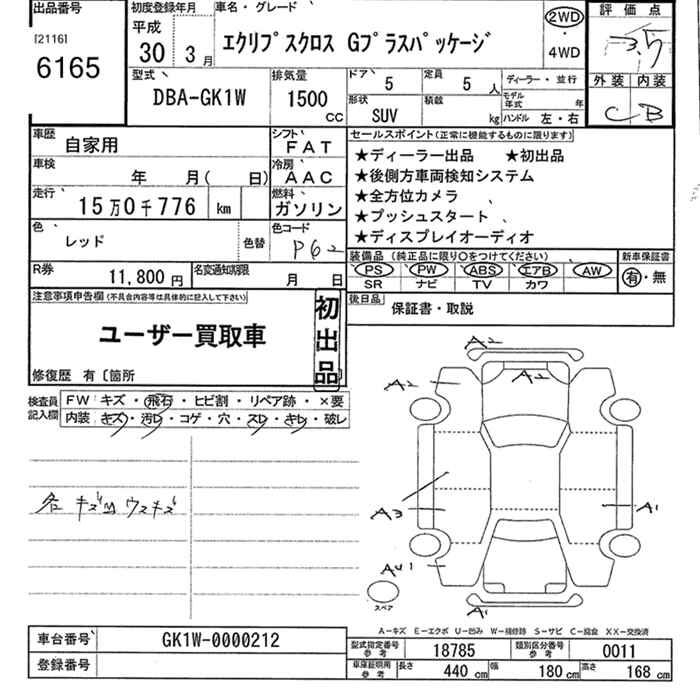 出品番号
[2116]
6165
初度登録年月
平成
30年 3月
車名・グレード
エクリプスクロス Gプラスパッケージ
2WD
・
4WD
評価点
3.5
外装 内装
C B
型式
DBA-GK1W
排気量
1500
CC
ドア 5
定員 5人
形状 SUV
積載 kg
ディーラー・並行
モデル年式 年
ハンドル 左・右
車歴 自家用
シフト FAT
車検 年 月( 日)
冷房 AAC
走行 15万0千776 km
燃料 ガソリン
色 レッド
色替
色コード P62
R券 11,800円
名変通知期限 月 日
セールスポイント(正常に機能するものに限ります)
★ディーラー出品 ★初出品
★後側方車両検知システム
★全方位カメラ
★プッシュスタート
★ディスプレイオーディオ
装備品(純正品に限り○をつけてください)
PS PW ABS エアB AW
SR ナビ TV カワ
新車保証書
有・無
後日品 保証書・取説
注意事項申告欄(不具合内容等は具体的に記入して下さい)
ユーザー買取車
初出品
修復歴 有〔箇所 〕
検査員記入欄
FW キズ・飛石・ヒビ割・リペア跡・×要
内装 キズ・汚レ・コゲ・穴・スレ・キレ・破レ
各キズ凹 ウスキズ
A2
A2
A2
A3
A1
AU1
A1
スペア
A-キズ E-エクボ U-凹み W-補修跡 S-サビ C-腐食 XX-交換済
車台番号 GK1W-0000212
登録番号
型式指定番号参考 18785
類別区分番号参考 0011
車庫証明用参考
長さ 440cm
幅 180cm
高さ 168cm